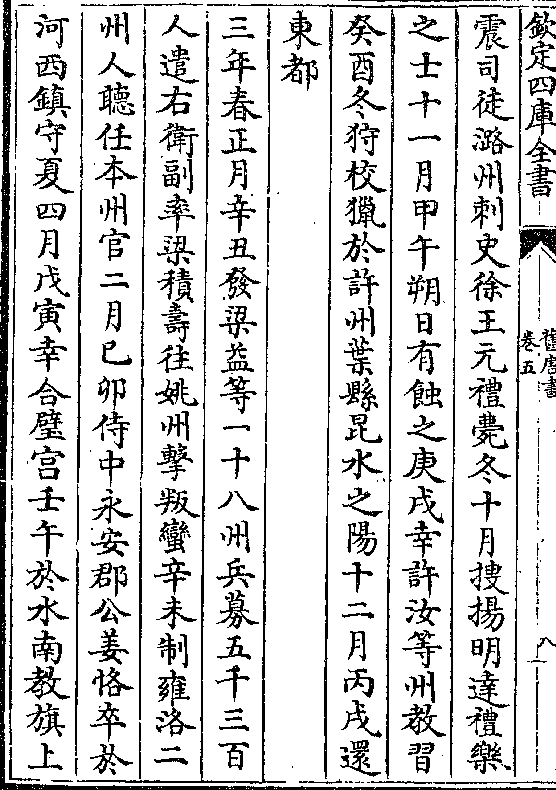 欽定四庫全書
舊唐書
卷五
八
震司徒潞州刺史徐王元禮薨冬十月搜揚明達禮樂
之士十一月甲午朔日有蝕之庚戌幸許汝等州教習
癸酉冬狩校獵於許州葉縣昆水之陽十二月丙戌還
東都
三年春正月辛丑發梁益等一十八州兵募五千三百
人遣右衛副率梁積壽往姚州擊叛蠻辛未制雍洛二
州人聽任本州官二月己卯侍中永安郡公姜恪卒於
河西鎮守夏四月戊寅幸合璧宫壬午於水南教旗上